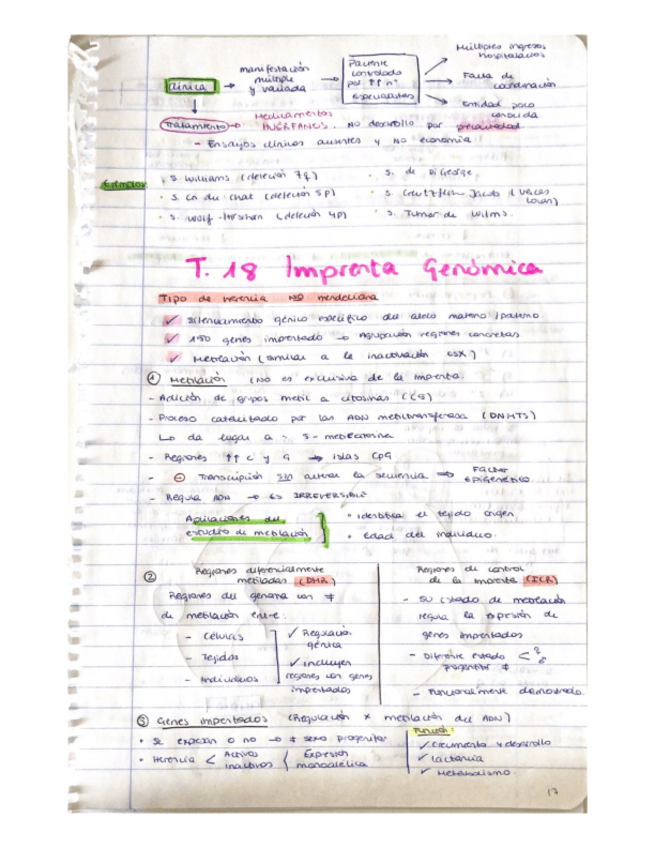 Clínica → manifestación múltiple y variada → Paciente controlado por ↑↑ nº especialistas
Múltiples ingresos hospitalarios
Falta de coordinación
Entidad poco conocida
Tratamiento → Medicamentos HUÉRFANOS. NO desarrollo por
- Ensayos clínicos ausentes y NO economía
Ejemplos
· S. Williams (deleción 7q)
· S. de DiGeorge
· S. Cri du chat (deleción 5p)
· S. Creutzfeldt Jacob (vacas locas)
· S. Wolf-Hirschhorn (deleción 4p)
· S. Tumor de Wilms.
T. 18 Imprenta Genómica
Tipo de herencia NO mendeliana
✓ Silenciamiento génico específico del alelo materno/paterno.
✓ 150 genes imprentado → Agrupación regiones concretas
✓ Metilación (similar a la inactivación CSX)
① Metilación (NO es exclusiva de la imprenta.
- Adición de grupos metil a citosinas (C5)
- Proceso catalizado por las ADN metiltransferasa (DNMTS)
↳ da lugar a 5-metilcitosina
- Regiones ↑↑ C y G → islas CpG
- ⊖ Transcripción SIN alterar la secuencia → Factor epigenético
- Regula ADN → es IRREVERSIBLE
Aplicaciones del estudio de metilación
• identificar el tejido origen
• edad del individuo.
② Regiones diferencialmente metiladas (DMR)
Regiones del genoma con ≠
de metilación entre:
- Células
- Tejidos
- Individuos
✓ Regulación génica
✓ incluyen regiones con genes imprentados
Regiones de control de la imprenta (ICR)
- Su estado de metilación
regula la expresión de
genes imprentados
- Diferente estado < ♀ ♂
progenitor ≠
- Funcionalmente demostrado.
③ Genes imprentados (Regulación x metilación del ADN)
• Se expresan o no → ≠ sexo progenitor
• Herencia < Activos inactivos { Expresión monoalélica
Función:
✓ Crecimiento y desarrollo
✓ Lactancia
✓ Metabolismo.
17